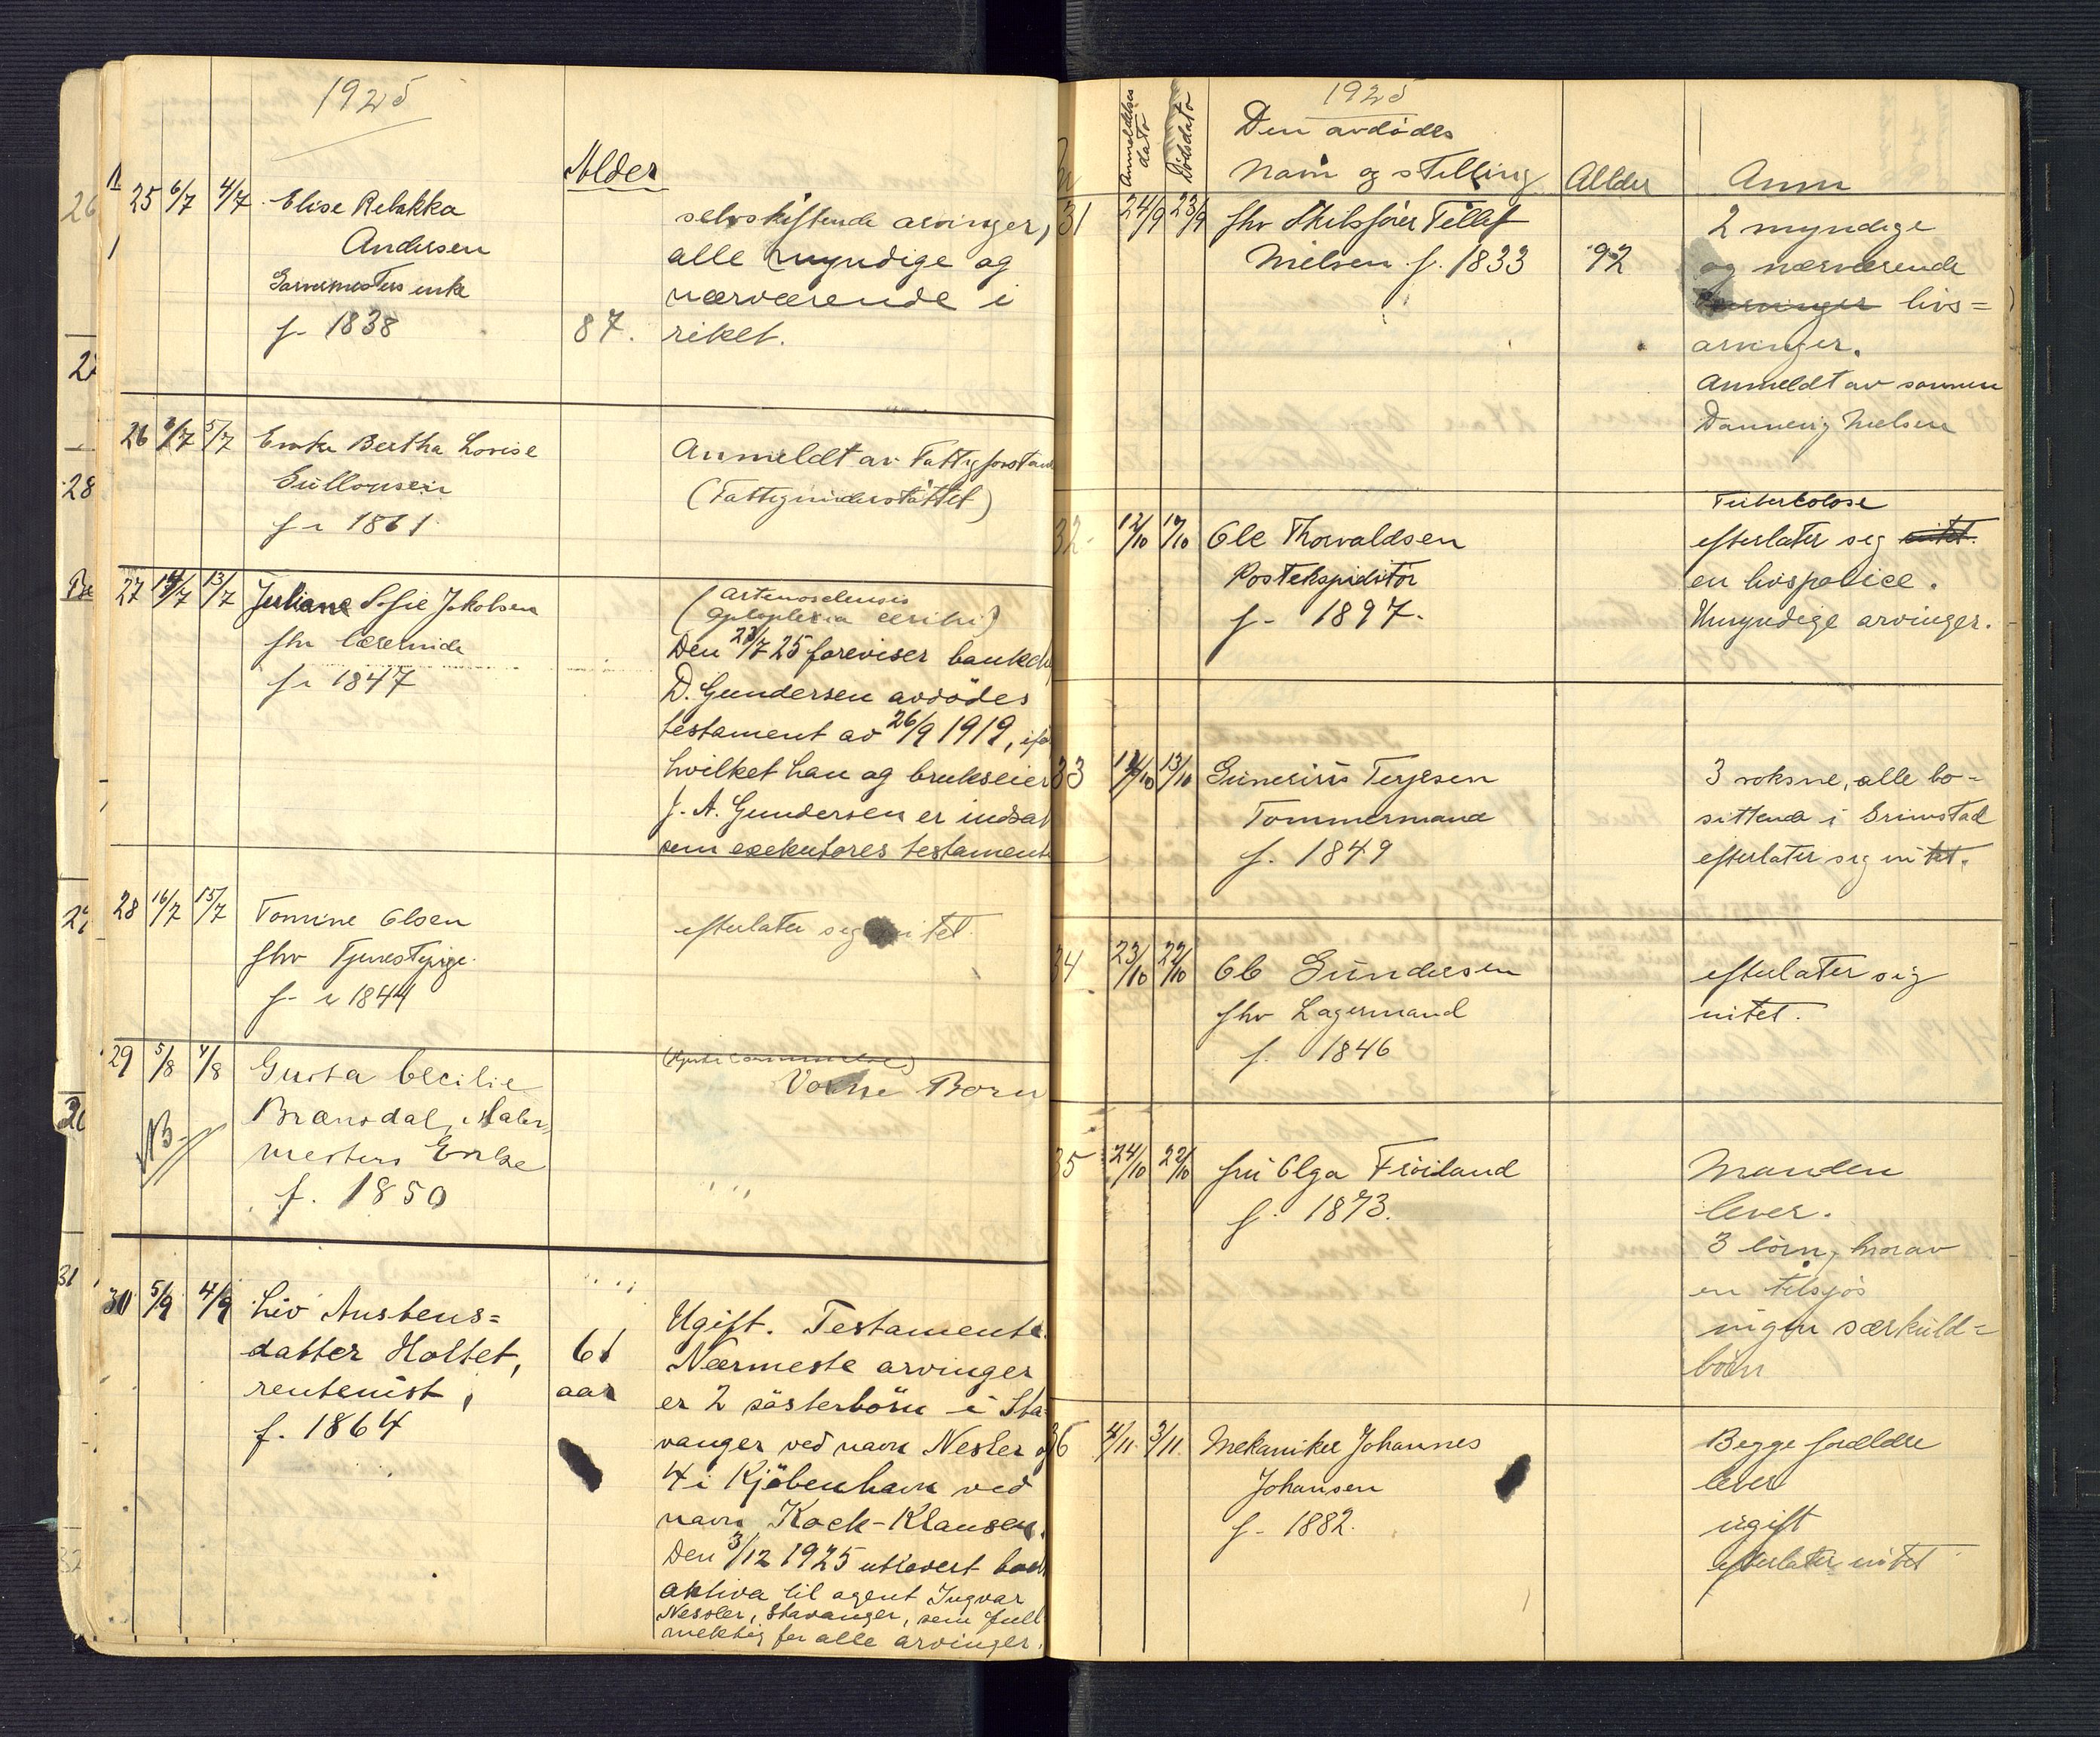 1925
Alder
25 6/7 4/7 Elise Rebekka
Andersen
Garvermesters enke
f. 1838
87.
selvskiftende arvinger,
alle myndige og
nærværende i
riket.
26 6/7 5/7 Enke Bertha Lovise
Gullovsen
f. 1861.
Anmeldt av Fattigforstan
(Fattigunderstøttet)
27 14/7 13/7 Juliane Sofie Jakobsen
fhv lærerinde
f. 1847
Den 23/7 25 foreviser bankch
D. Gundersen avdødes
testament av 26/9 1919, ifø
hvilket han og brukseier
J. A. Gundersen er indsat
som exekutores testament
28 16/7 15/7 Tomine Olsen
fhv Tjenestepige.
f. 1844
efterlater seg intet.
29 5/8 4/8 Gusta Cecilie
Bransdal, Maler-
mesters Enke
f. 1850
NB
Voksne Børn
30 5/9 4/9 Liv Austens=
datter Holtet,
rentenist,
f. 1864
61
aar
Ugift. Testamente.
Nærmeste arvinger
er 2 søsterbørn i Sta=
vanger ved navn Nesler o
4 i Kjöbenhavn ved
navn Kock-Klausen.
Den 3/12 1925 utlevert boe
aktiva til agent Ingvar
Nessler, Stavanger, som full
mektig for alle arvinger.
1925
Anmeldelses
dato
Dødsdato
Den avdødes
Navn og stilling
Alder
Anm
31 24/9 23/9 fhv Skibsfører Tellef
Nielsen f. 1833
92
2 myndige
og nærværende
arvinger livs=
arvinger.
Anmeldt av sønnen
Dannevig Nielsen
32 12/10 Ole Thorvaldsen
Postekspeditør
f. 1897.
Tuberkolose
efterlater seg intet.
en livspolice.
Umyndige arvinger.
33 14/10 13/10 Gunerius Terjesen
Tømmermand
f. 1849
3 voksne, alle bo-
sittende i Grimstad
efterlater seg intet.
34 23/10 22/10 Ole Gundersen
fhv Lagermand
f. 1846
efterlater sig
intet.
35 24/10 22/10 fru Olga Frøiland
f. 1873.
Manden
lever.
3 børn, hvorav
en tilsjøs
ingen særkuld=
børn
36 4/11. 3/11. Mekaniker Johannes
Johansen
f. 1882.
Begge forældre
lever
ugift
efterlater intet